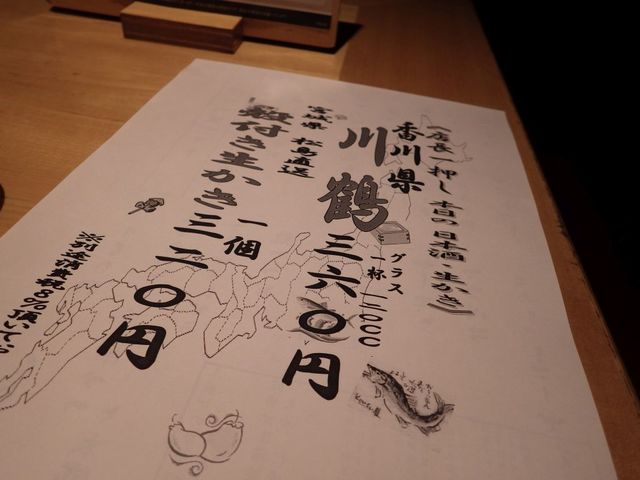 《店長一押し 本日の日本酒・生かき》
香川県
川鶴
グラス
一杯 一二〇cc
三六〇円
宮城県 松島直送
殻付き生かき
一個
三二〇円
※別途消費税8%頂いてお